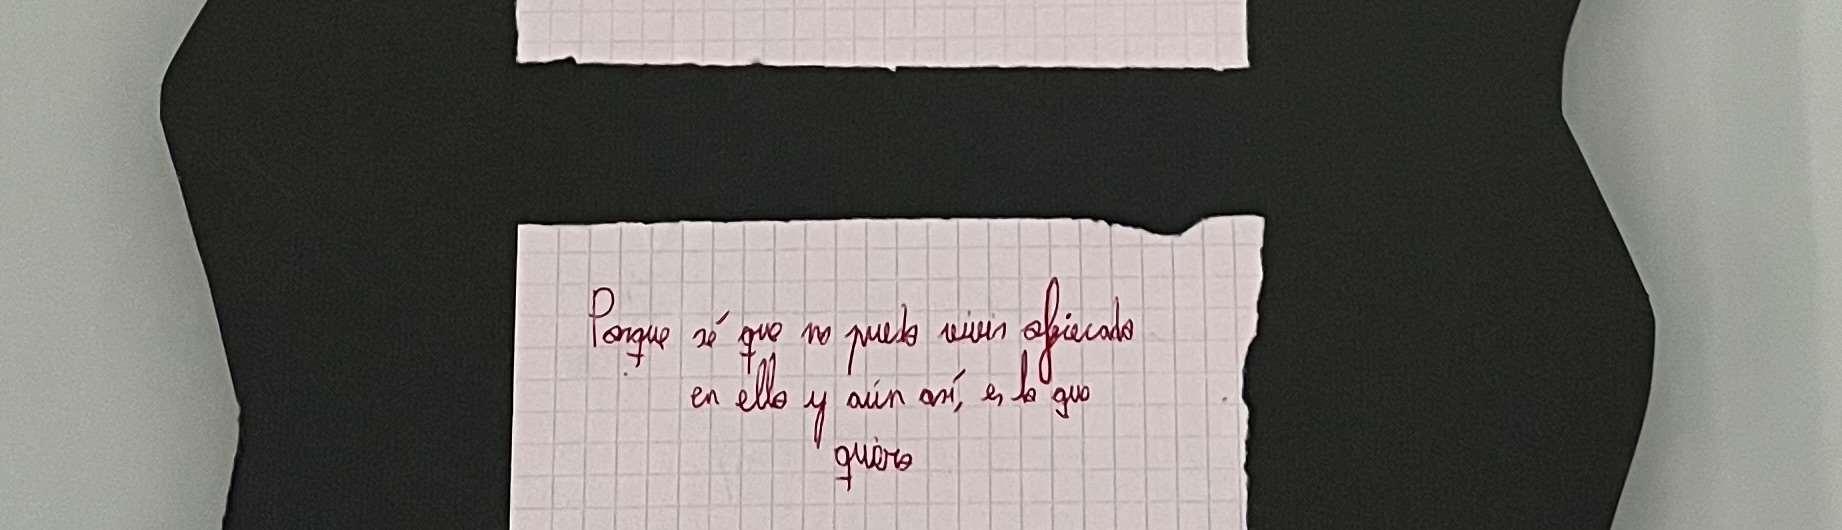 Porque sé que no puedo vivir aferrado
en ello y aún así, es lo que
quiero